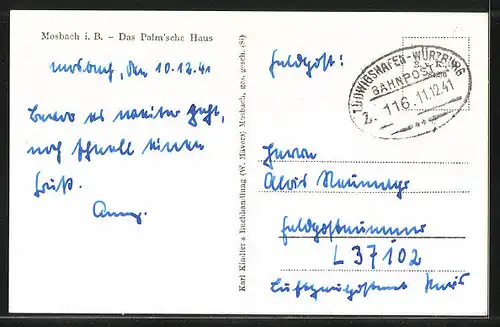 Mosbach i. B. – Das Palm'sche Haus
Mosbach, den 10.12.41
Bevor es weiter geht,
noch schnell einen
Gruß.
Karl Kindler's Buchhandlung (W. Mävers) Mosbach, ges. gesch. (8i)
Feldpost!
LUDWIGSHAFEN-WÜRZBURG
BAHNPOST
Z. 116 11.12.41
Herrn
Alois
Feldpostnummer
L 37102
Luftgaupostamt Paris